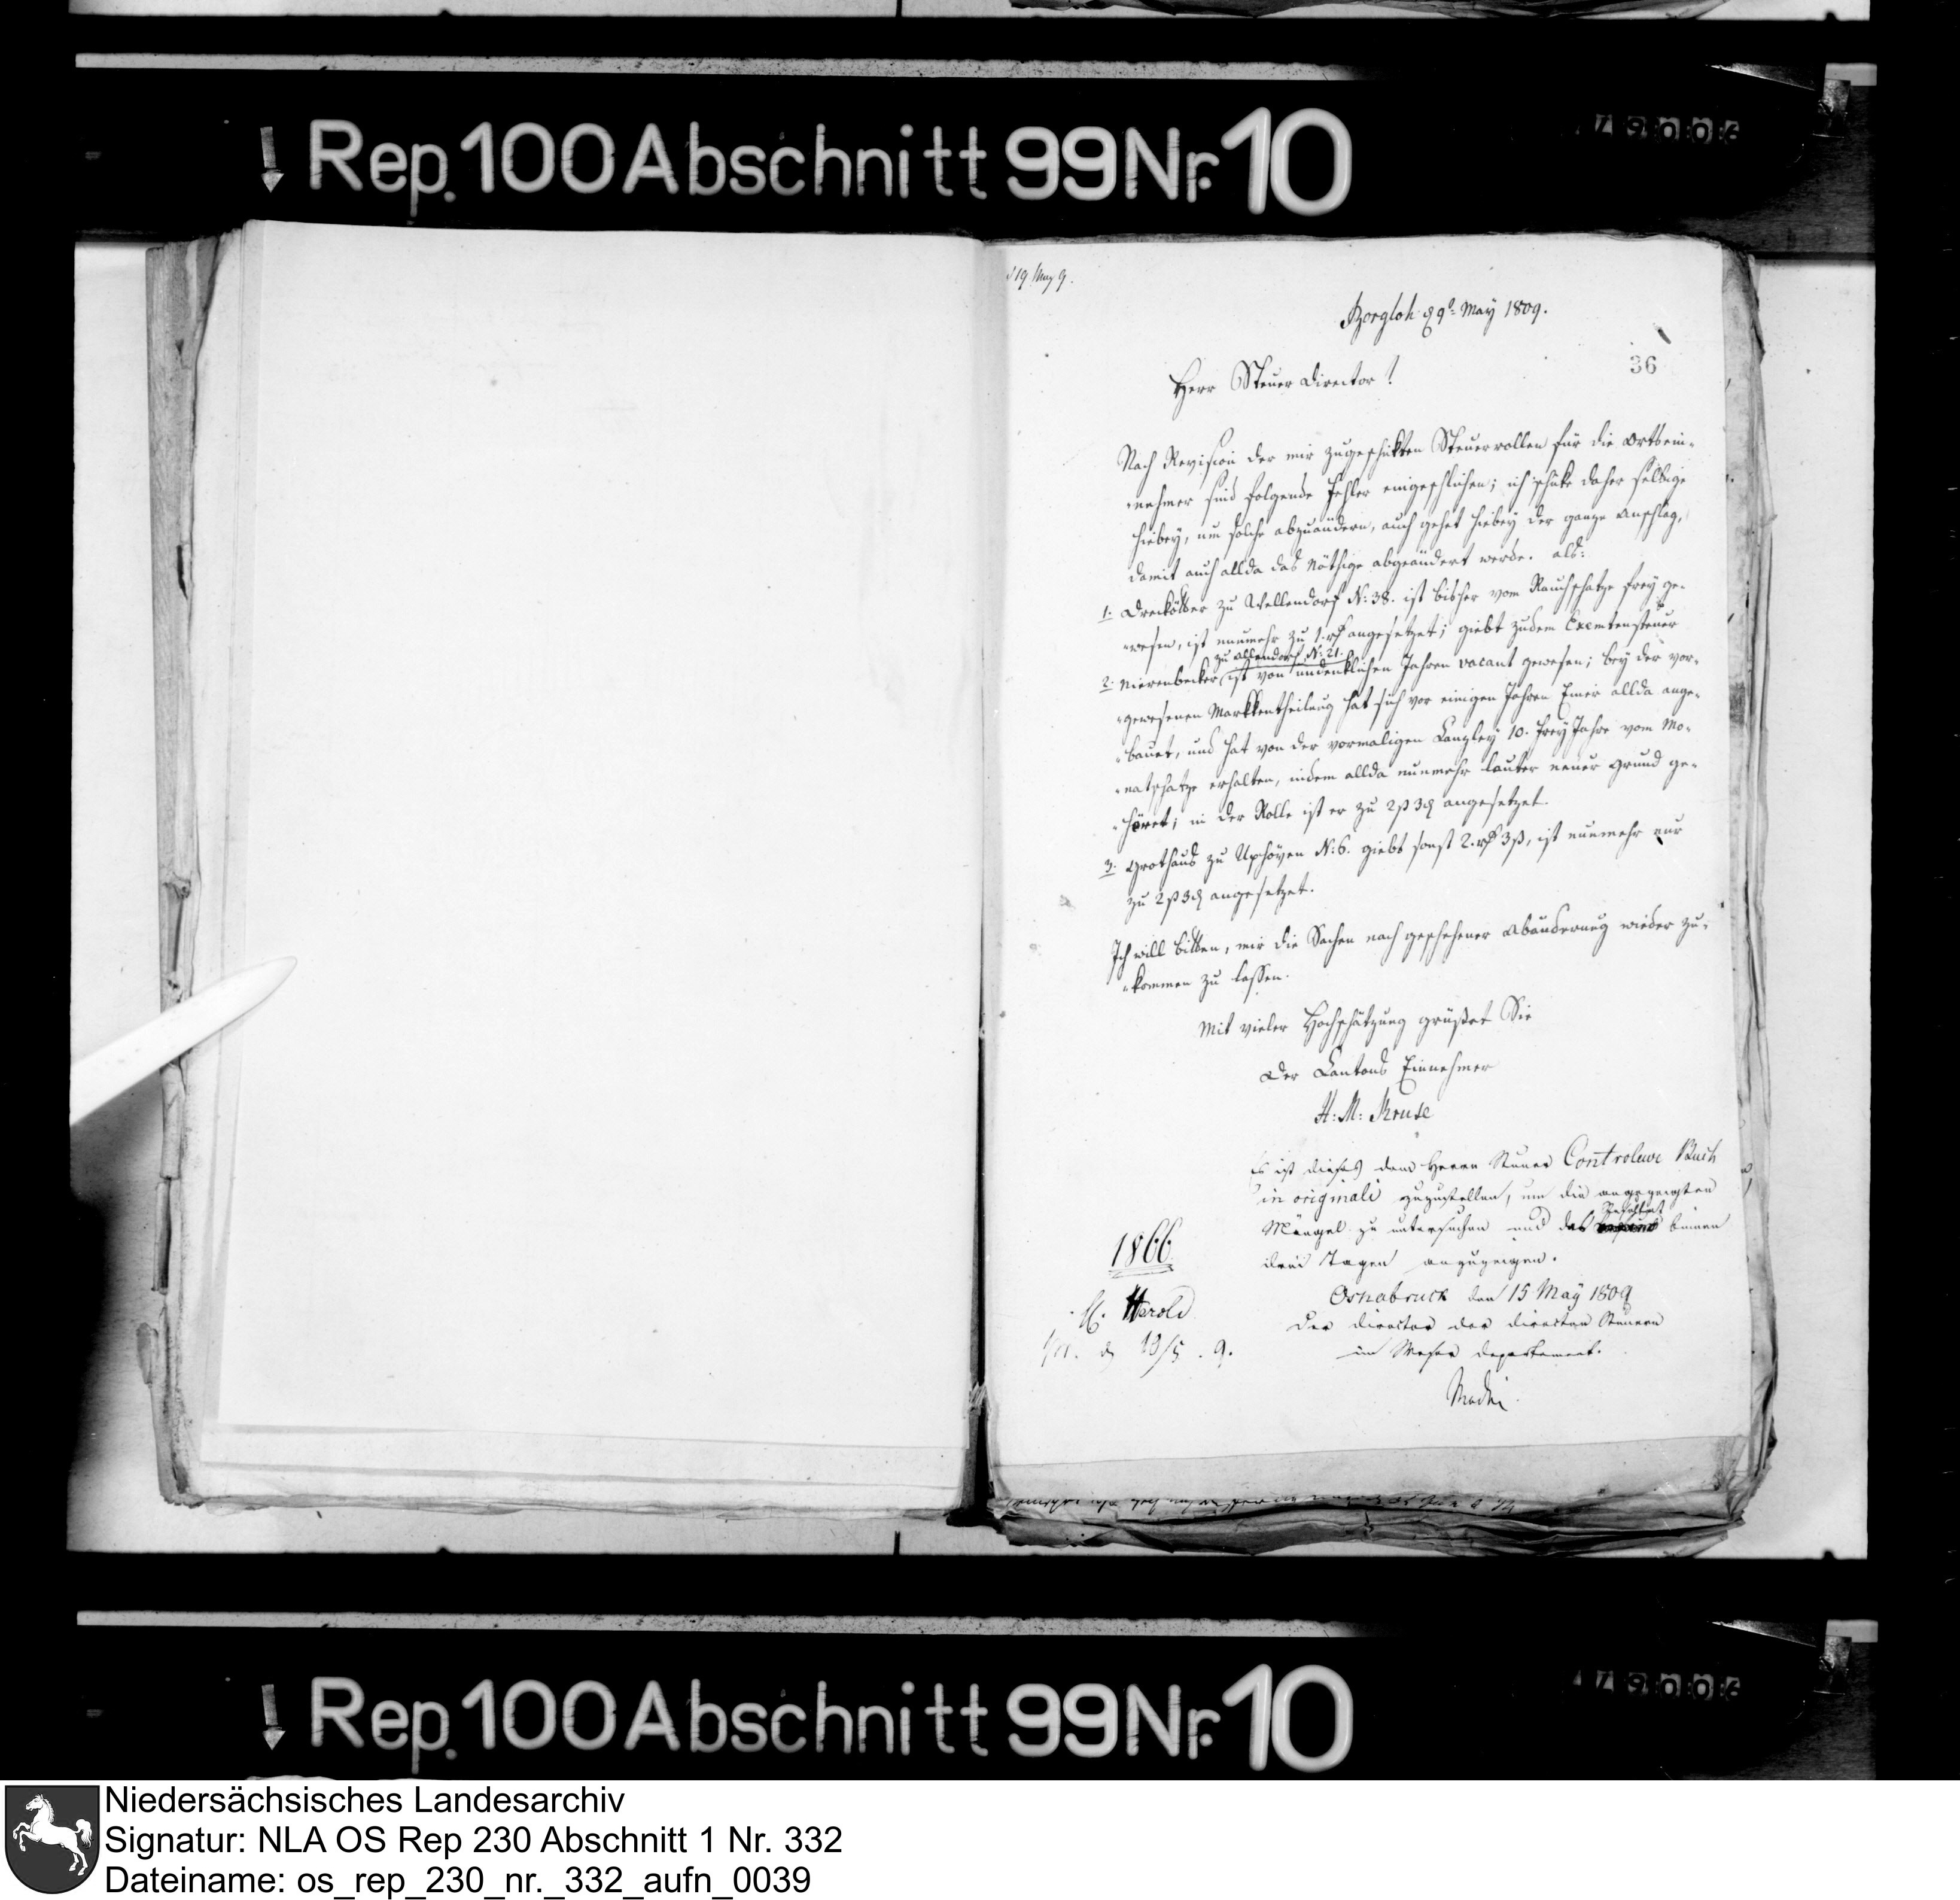 Rep. 100 Abschnitt 99 Nr. 10
19 May 9.
Borgloh d 9t May 1809.
36
Herr Steuer Director!
Nach Revision der mir zugeschikten Steuerrollen für die Ortsein-
-nehmer sind folgende Fehler eingeschlichen; ich schicke daher selbige
hiebey, um solche abzuändern, auch gehet hiebey der ganze Anschlag,
damit auch allda das Nöthige abgeändert werde. als:
1. Dreckötter zu Wellendorf N: 38. ist bisher vom Rauchschatze frey ge-
-wesen, ist nunmehr zu 1. rh angesetzet; giebt zudem Exemtensteuer
zu Allendorf N: 21.
2. Nierenbecker ist von undenklichen Jahren vacant gewesen; bey der vor-
-gewesenen Markkentheilung hat sich vor einigen Jahren Einer allda ange-
-bauet, und hat von der vormaligen Canzley 10. Frey Jahre vom Mo-
-natschatze erhalten, indem allda nunmehr lauter neuer Grund ge-
-höret; in der Rolle ist er zu 2ß 3d angesetzet.
3. Grothaus zu Uphöven N: 6. giebt sonst 2. rh 3ß, ist nunmehr nur
zu 2ß 3d angesetzet.
Ich will bitten, mir die Sachen nach geschehener Abänderung wieder zu-
-kommen zu lassen.
Mit vieler Hochschätzung grüßet Sie
Der Cantons Einnehmer
H: M: Kruse
Es ist dieses dem Herrn Steuer Controleur Buch
in originali zuzustellen, um die angezeigten
Resultat
Mängel zu untersuchen und das binnen
drei Tagen anzuzeigen.
1866
Osnabruck den 15 May 1809
Herold
Der Director der directen Steuern
18/5. 9.
im Weser Departement.
Rep. 100 Abschnitt 99 Nr. 10
Niedersächsisches Landesarchiv
Signatur: NLA OS Rep 230 Abschnitt 1 Nr. 332
Dateiname: os_rep_230_nr._332_aufn_0039